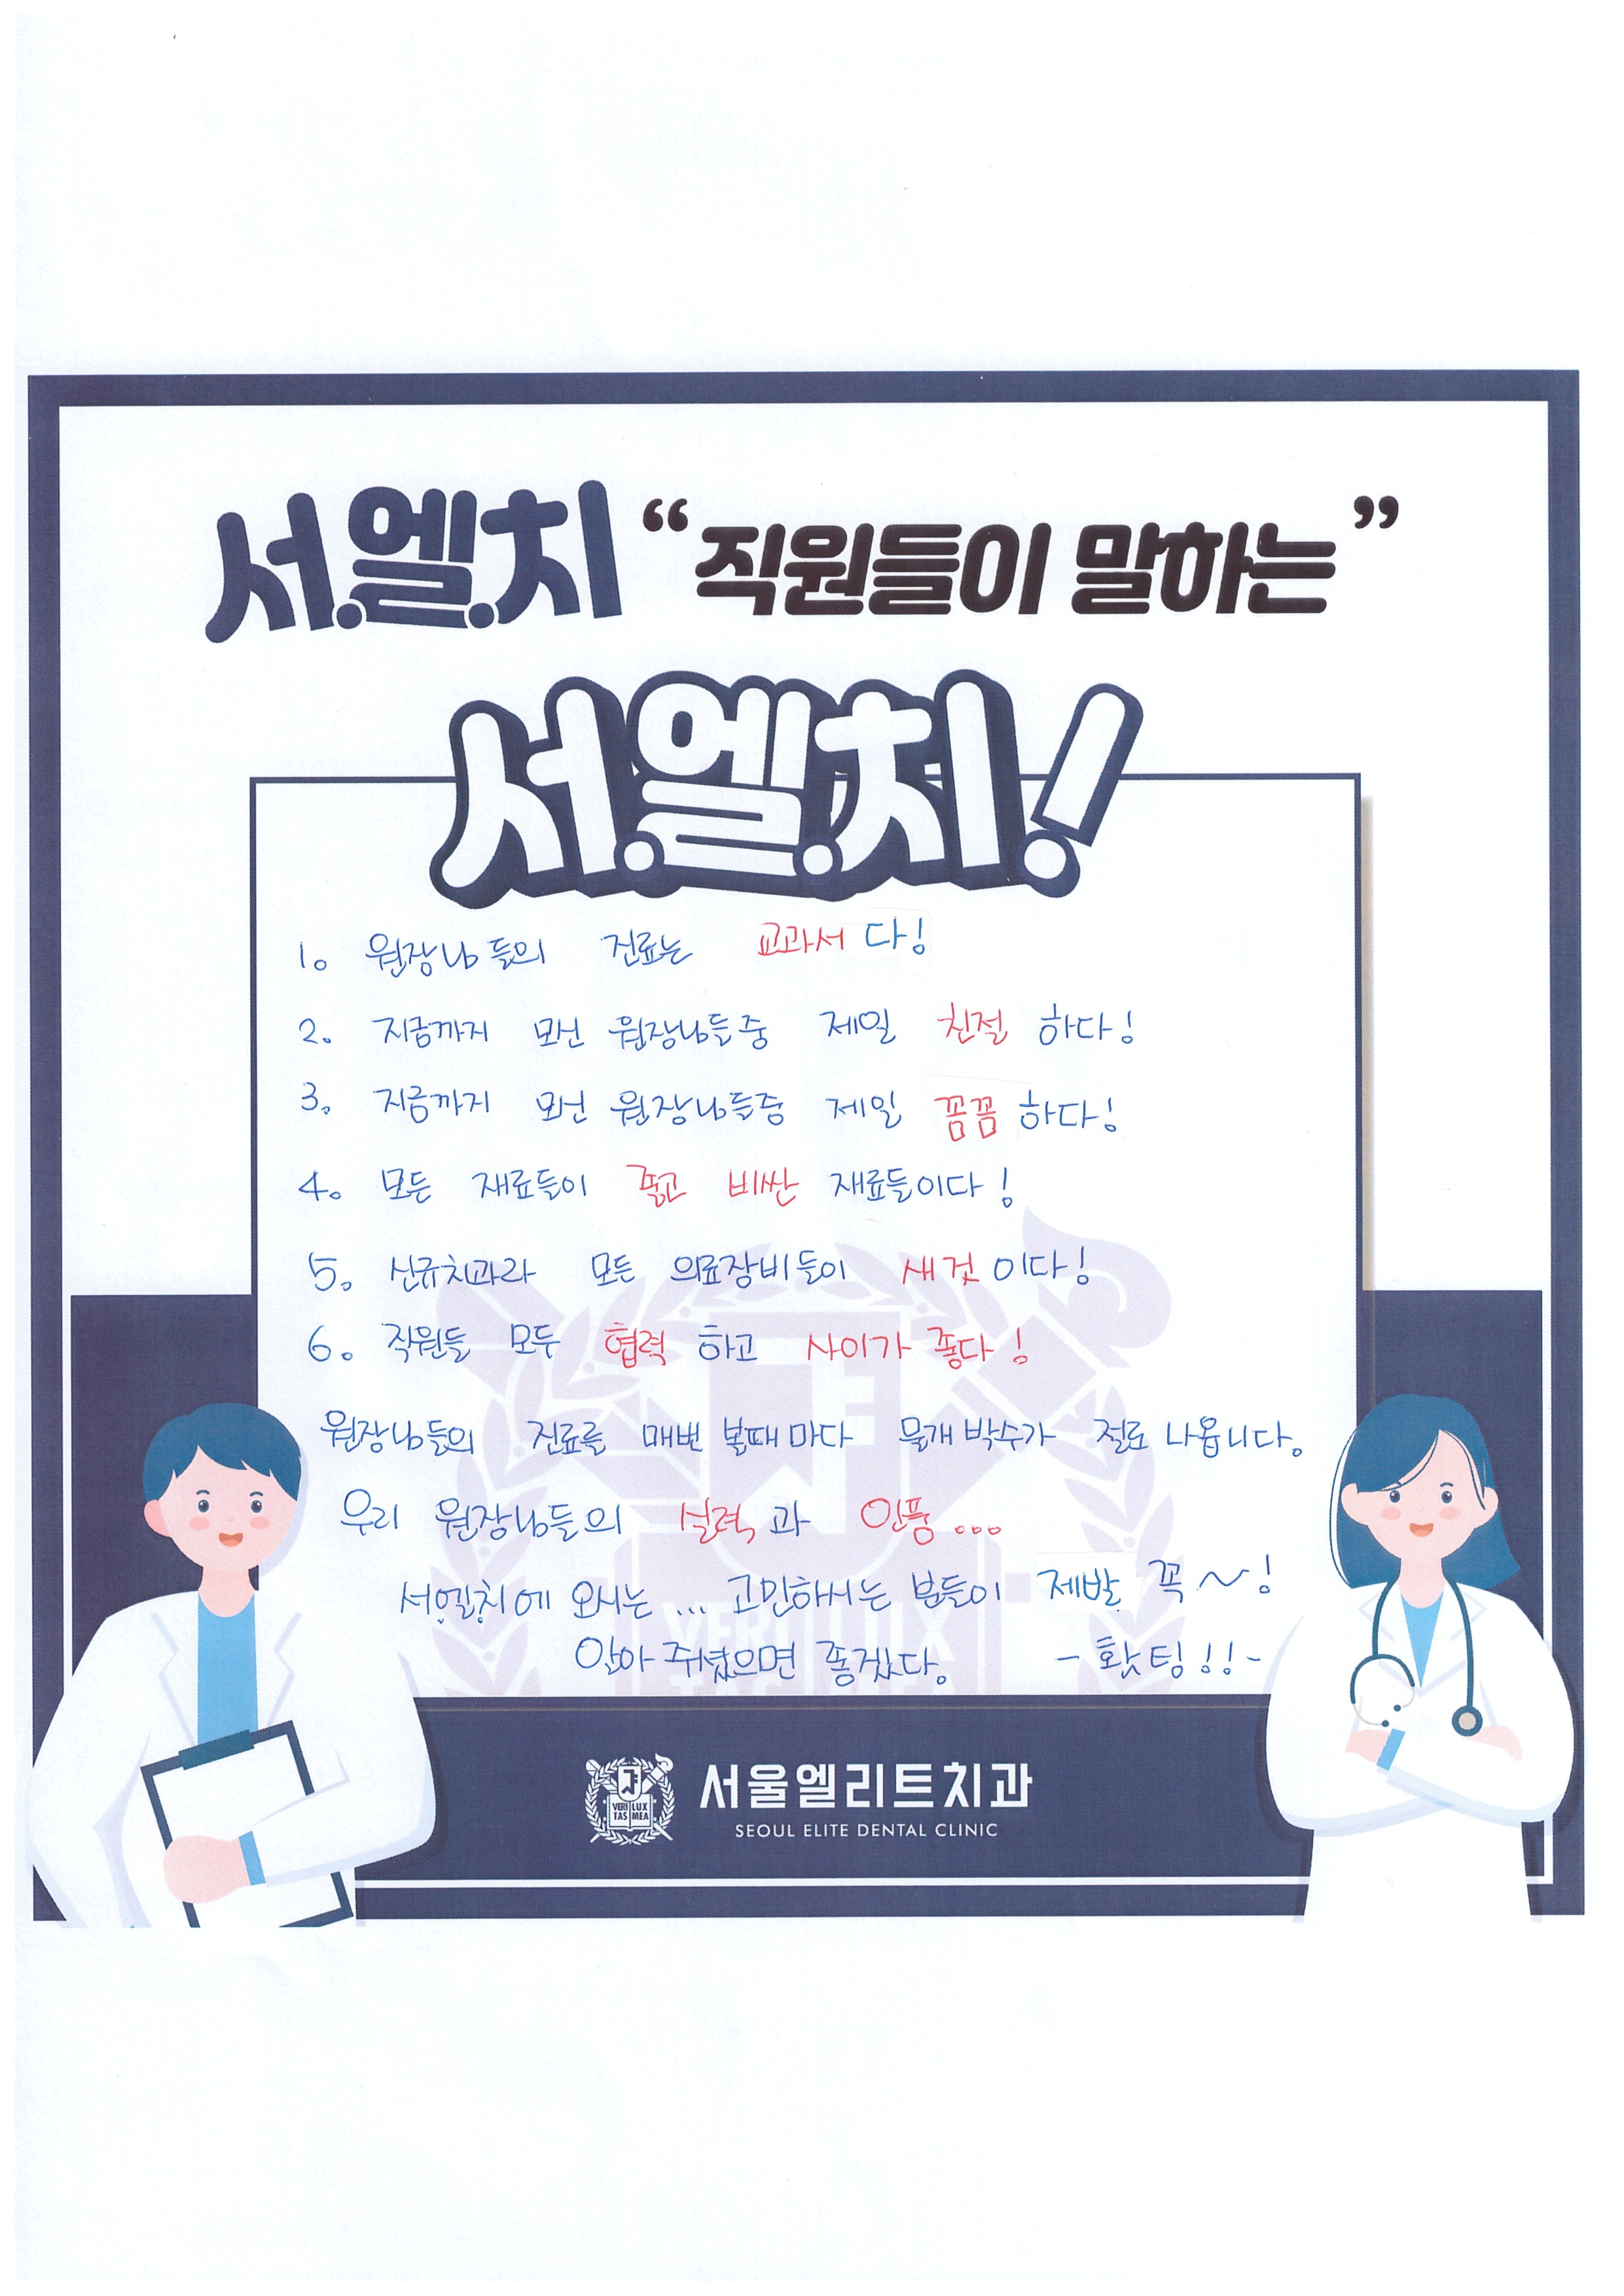 서.엘.치 “직원들이 말하는”
서.엘.치!
1. 원장님들의 진료는 교과서다!
2. 지금까지 모신 원장님들중 제일 친절하다!
3. 지금까지 모신 원장님들중 제일 꼼꼼하다!
4. 모든 재료들이 좋고 비싼 재료들이다!
5. 신규치과라 모든 의료장비들이 새것이다!
6. 직원들 모두 협력하고 사이가 좋다!
원장님들의 진료를 매번 볼때마다 물개박수가 절로 나옵니다.
우리 원장님들의 실력과 인품...
서.엘.치에 오시는... 고민하시는 분들이 제발 꼭~!
알아 주셨으면 좋겠다. - 홧팅!!-
VERI LUX
TAS MEA
서울엘리트치과
SEOUL ELITE DENTAL CLINIC
VERI LUX
TAS MEA